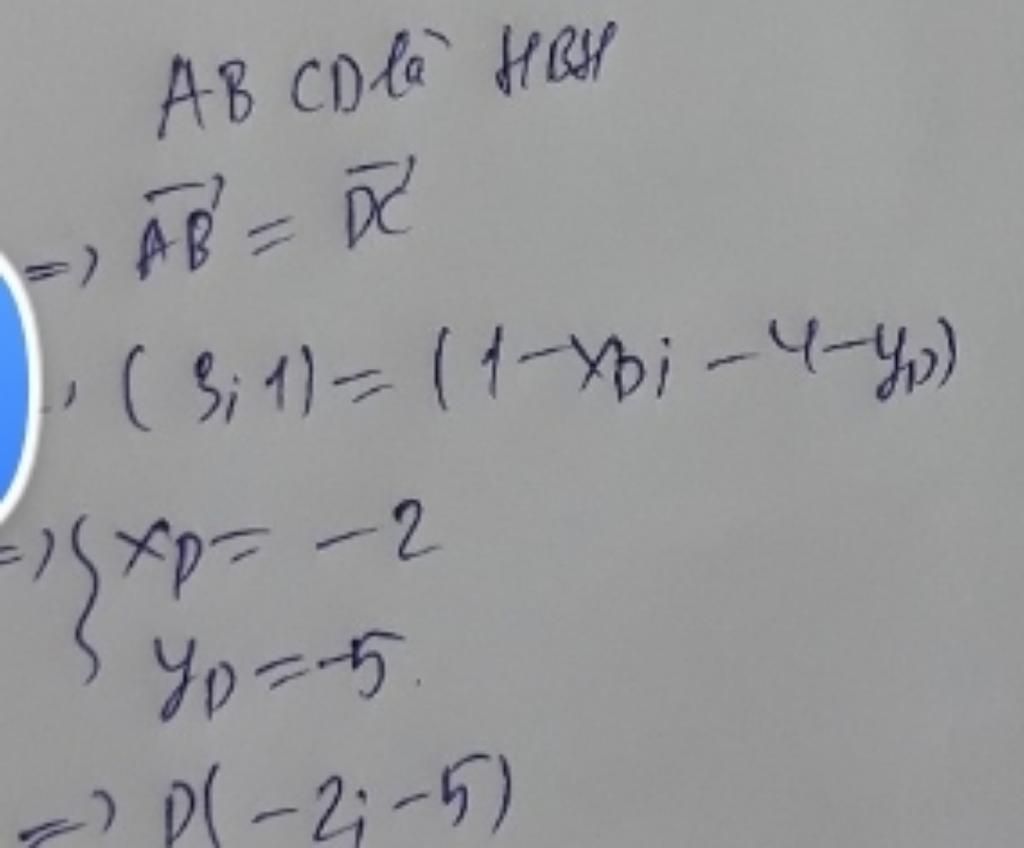 ABCD là HBH
=> \overrightarrow{AB} = \overrightarrow{DC}
(3; 1) = (1 - x_D; -4 - y_D)
=> { x_D = -2
y_D = -5.
=> D(-2; -5)